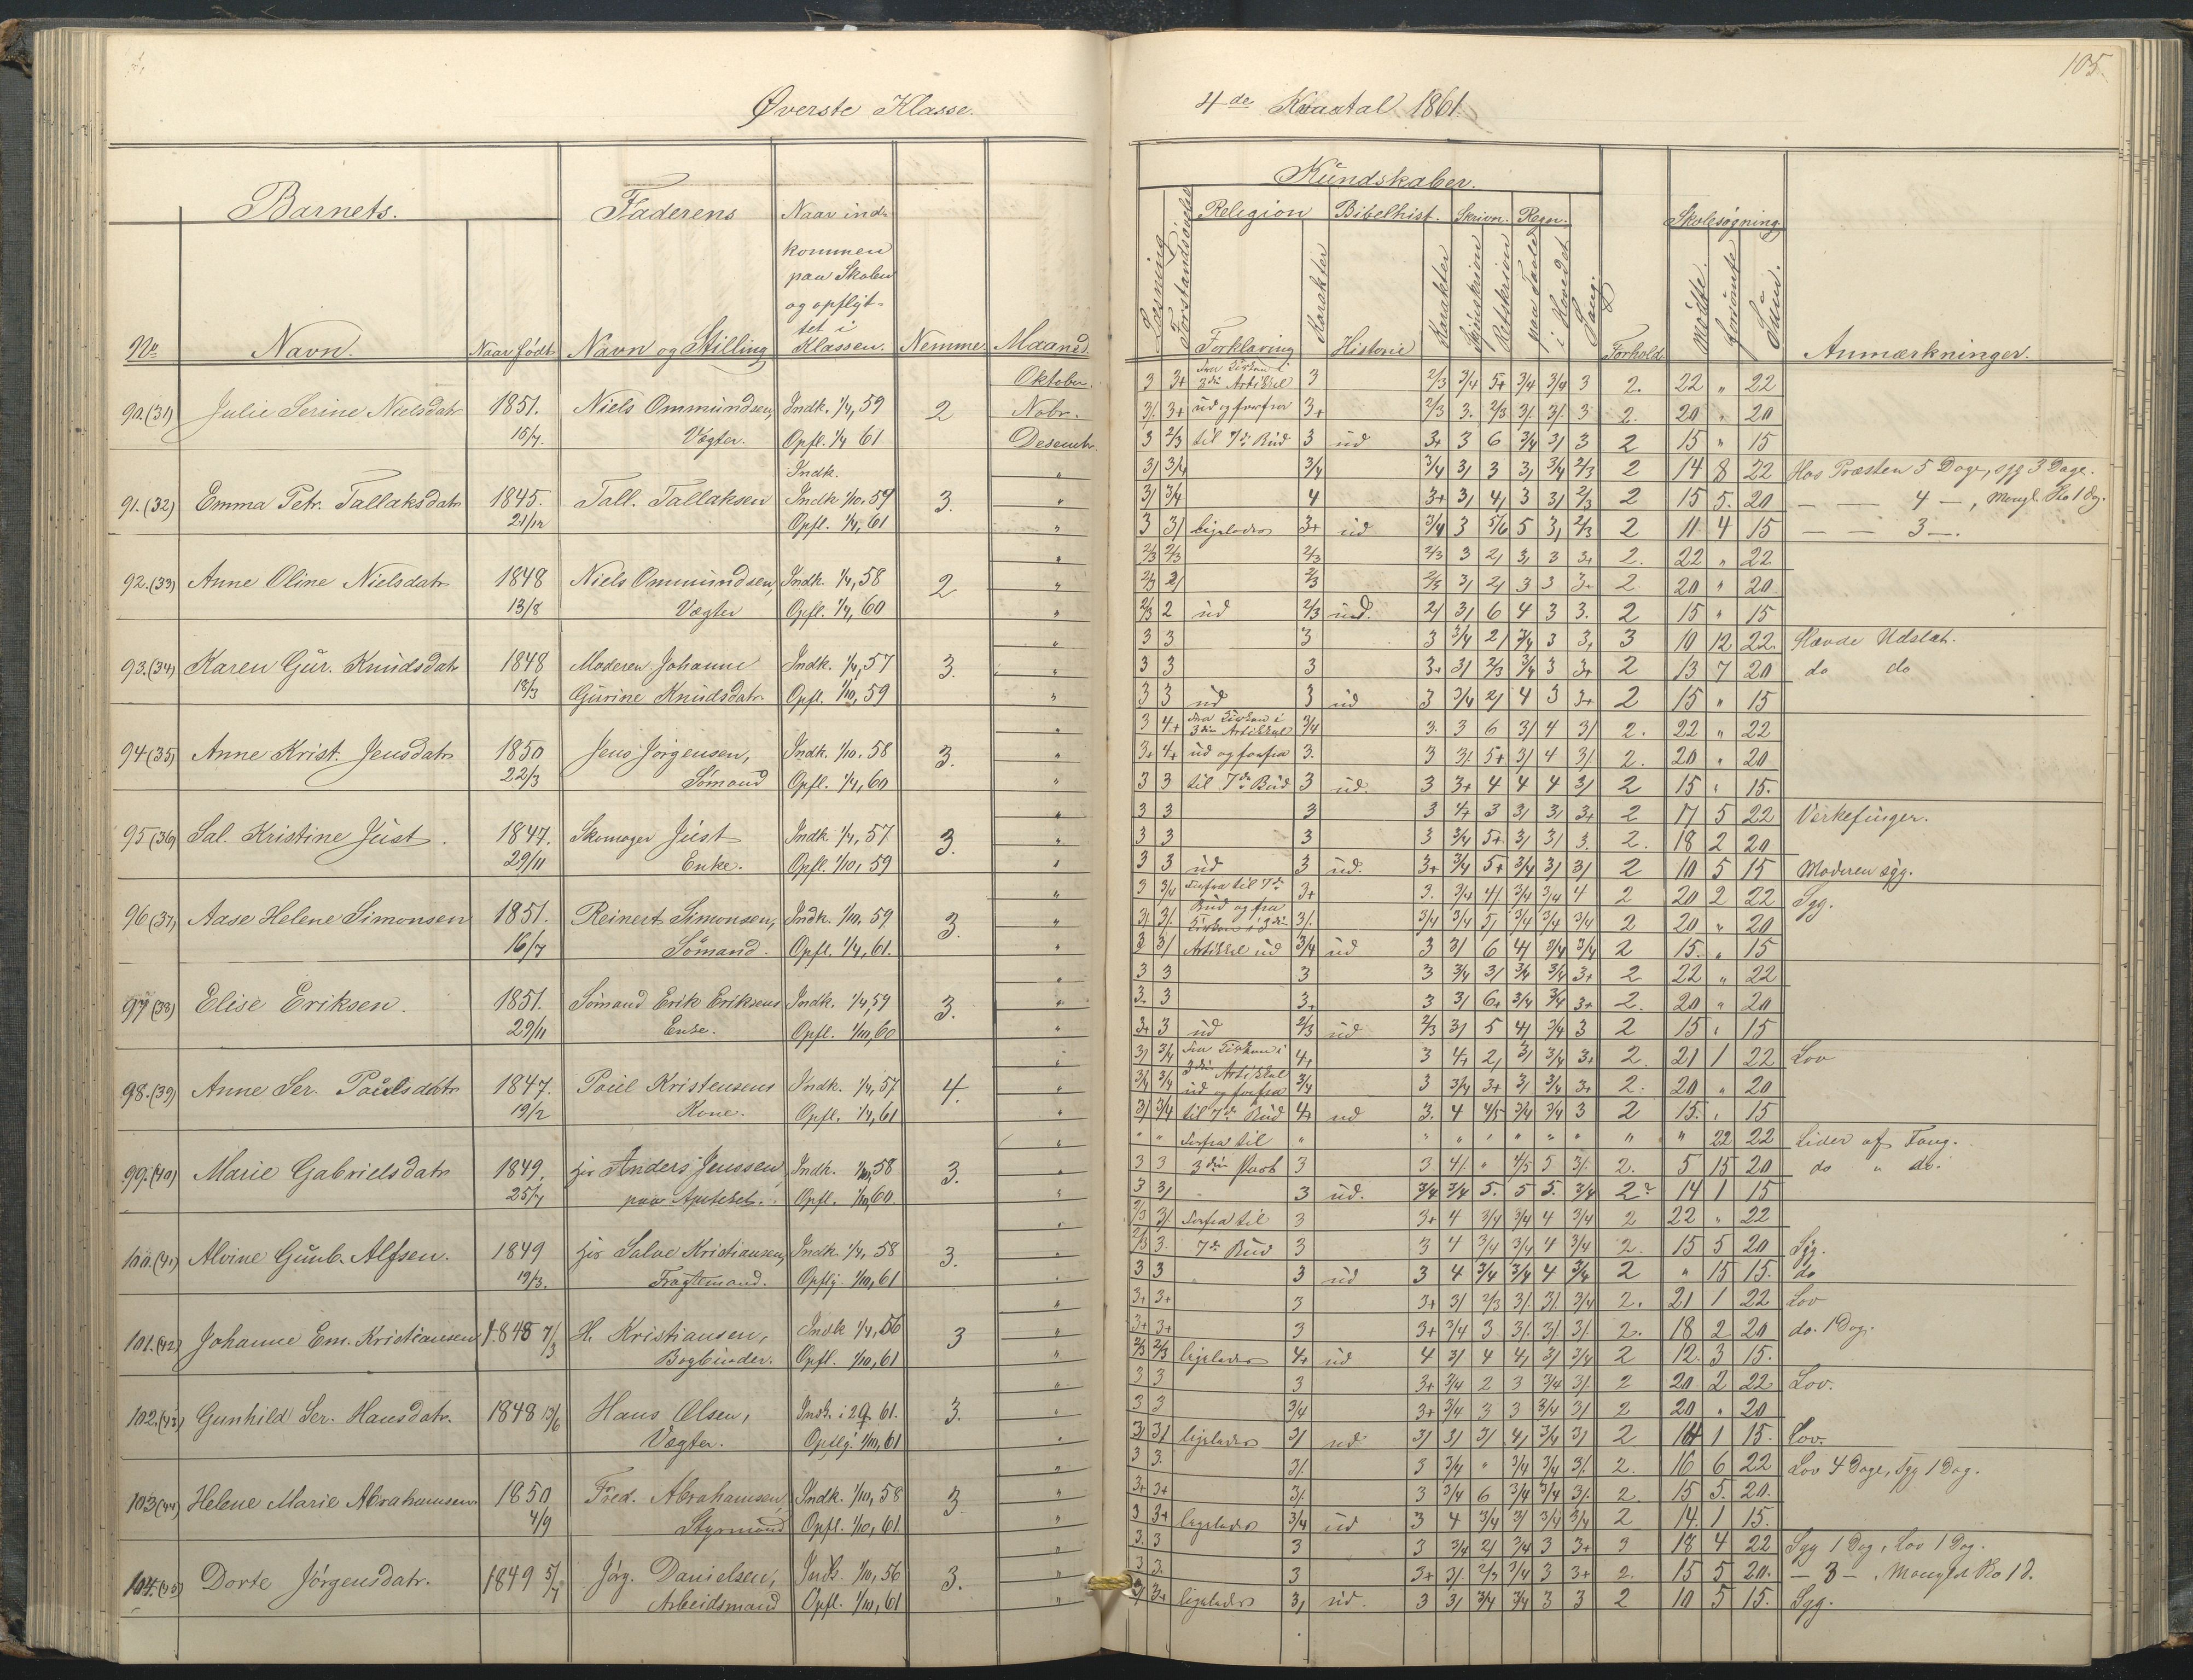 105
Øverste Klasse.
4de Kvartal 1861.
Barnets.
Faderens
Naar ind-
kommen
paa Skolen
og opflyt-
tet i
Klassen.
No
Navn.
Naar født
Navn og Stilling
Nemme.
Maaned.
Kundskaber.
Læsning
Forstandsøvelse
Religion
Bibelhist.
Skrivn.
Regn.
Forklaring
Karakter
Historie
Karakter
Skjønskrivn
Retskrivn
paa Tavle
i Hovedet
Sang.
Forhold.
Skolesøgning
Mødte.
forsømte
Sum.
Anmærkninger.
90.(31) Julie Serine Nielsdatr 1851. Niels Ommundsen, Indk. 1/4, 59 2 Oktober. Nobr.
15/7. Vægter. Opfl. 1/4 61 Desembr
3 3+ 3die Artikkel 3 2/3 3/4 5+ 3/4 3/4 3 2. 22 " 22
ud og forfra 3+ 2/3 3. 2/3 3/. 3/. 3 2. 20 " 20
3 2/3 til 7de Bud 3 ud 3+ 3 6 3/4 3/ 3 2 15 " 15
91.(32) Emma Petr. Tallaksdatr 1845. Tall. Tallaksen Indk 1/10. 59 3.
21/12 Opfl. 1/4, 61
3/ 3/4 3/4 3/4 3/ 3 3/ 3/4 2/3 2 14 8 22 Hos Præsten 5 Dage, syg 3 Dage.
3/ 3/4 4 3+ 3/ 4/ 3 3/ 2/3 2 15 5. 20 — — 4 —, Mangl. Sko 1 Dag.
3 3/ ligeledes 3+ ud 3/4 3 5/6 5 3/ 2/3 2 11 4 15 — — 3 —.
92.(33) Anne Oline Nielsdatr 1848 Niels Ommundsen, Indk. 1/4, 58 2
13/8 Vægter Opfl. 1/4, 60
2/3 2/3 2/3 2/3 3 2/ 3/ 3 3+ 2. 22 " 22
2/3 2/ 2/3 2/3 3/ 2/ 3 3 3+ 2. 20 " 20
2/3 2 ud 2/3 ud. 2/ 3/ 6 4 3 3. 2 15 " 15
93.(34) Karen Gur. Knudsdatr 1848 Moderen Johanne Indk. 1/4, 57 3.
18/3 Gurine Knudsdatr Opfl. 1/10, 59
3 3 3 3 3/4 2/ 3/4 3 3/ 3 10 12 22. Havde Udslæt.
3 3 3 3+ 3/ 2/3 3/4 3 3+ 2 13 7 20 do do
3 3 ud 3 ud 3 3/4 2/ 4 3 3+ 2 15 " 15
94(35) Anne Krist. Jensdatr 1850 Jens Jørgensen, Indk. 1/10. 58 3.
22/3 Sømand Opfl. 1/4, 60
3 4+ 3die Artikkel 3/4 3. 3 6 3/ 4 3/ 2. 22 " 22
3+ 4+ ud og forfra 3. 3 3/. 5+ 3/ 4 3/. 2. 20 " 20
3 3 til 7de Bud 3 ud. 3 3+ 4 4 4 3/ 2 15 " 15.
95(36) Sal. Kristine Just. 1847. Skomager Just Indk. 1/4, 57 3.
29/11 Enke. Opfl. 1/10, 59
3 3 3 3 4+ 3 3/ 3/ 3+ 2 17 5 22 Verkefinger.
3 3 3 3 3/4 5+ 3/ 3/ 3. 2. 18 2 20
3 3 ud 3 ud. 3+ 3/4 5+ 3/4 3/ 3/ 2 10 5 15 Moderen syg.
96(37) Aase Helene Simonsen 1851. Reinert Simonsen, Indk. 1/10, 59 3.
16/7 Sømand. Opfl. 1/4, 61.
3 3/4 Forfra til 7de 3+ 3. 3/4 4/ 3/4 3/4 4 2 20 2 22 Syg.
3/. 3/. Bud og fra 3/. 3/4 3/4 5/ 3/4 3/4 3/4 2 20 " 20
3 3/ Artikkel ud 3/4 ud 3 3/ 6 4/ 3/4 3/4 2 15. " 15
97(38) Elise Eriksen. 1851. Sømand Erik Eriksens Indk. 1/4, 59 3.
29/11 Enke. Opfl. 1/10, 60
3 3 3 3 3/4 3/ 3/4 3/4 3+ 2 22 " 22
3. 3 3+ 3 3/ 6+ 3/4 3/4 3+ 2. 20 " 20
3+ 3 ud 2/3 ud 2/3 3/ 5 4/ 3/4 3 2 15 " 15
98.(39) Anne Ser. Poulsdatr 1847. Poul Kristensens Indk. 1/4, 57 4.
19/2 Kone. Opfl. 1/4, 61
3/ 3/4 4+ 3 4+ 2/ 3/ 3/4 3+ 2 21 1 22 Lov
3/4 3/4 3die Artikkel ud og forfra 3/4 3 3/4 3+ 3/ 3/4 3+ 2. 20 " 20
3/ 3/4 til 7de Bud 4+ ud 3. 4 4/5 3/4 3/4 3 2 15. " 15
99.(40) Marie Gabrielsdatr 1849. hos Anders Jenssen Indk. 1/10, 58 3.
25/7 paa Apotheket. Opfl. 1/10, 60
" " Forfra til " " " " " " " " " 22 22 Lider af Fang.
3 3 3die Part 3 3 4/. " 4/5 5 3/. 2. 5 15 20 do " do.
3 3/ 3 ud. 3/4 3/4 5. 5 5. 3/4 2? 14 1 15
100.(41) Alvine Gunb. Alfsen. 1849 hos Salve Kristiansen, Indk. 1/4, 58 3.
19/3. Fragtemand. Opflg. 1/10, 61
2/3 3/. Forfra til 3 3+ 4 3/4 3/4 4 3/4 2 22 " 22
2/3 3. 7de Bud 3 3 4 3/4 3/4 4 3/4 2. 15 5 20 Syg.
3 3 3 ud 3 4 3/4 3/4 4 3/4 2 " 15 15. do
101.(42) Johanne Em. Kristiansen 1848 7/3 H. Kristiansen, Indk 1/4, 56 3
Bogbinder. Opfl. 1/10, 61
3+ 3+ 3 3+ 3/ 2/3 3/. 3/. 3/4 2. 21 1 22 Lov
3+ 3+ 3 3+ 3/4 3 3/. 3/. 3/. 2. 18 2 20 do. 1 Dag.
2/3 2/3 ligeledes 4+ ud 4 3/ 4 4/ 3/ 3/4 2 12. 3 15.
102.(43) Gunhild Ser. Hansdatr. 1848 13/6 Hans Olsen, Indk. i 2 q. 61. 3.
Vægter. Opflg. 1/10, 61
3 3 3 3+ 3/4 2 3 3/4 3/. 2 20 2 22 Lov.
3 3 3/4 3+ 3/4 3 3 3/4 3/ 2 20 " 20
3/ 3/ ligeledes 3/ ud 3/ 3/ 3/ 4/ 3/4 3/ 2 14 1 15. Lov.
103(44) Helene Marie Abrahamsen. 1850 Fred. Abrahamsen, Indk. 1/10, 58 3.
4/9 Styrmand Opfl. 1/10, 61
3 3. 3/. 3 3/4 " 3/4 3/4 3/. 2. 16 6 22 Lov 4 Dage, Syg 1 Dag.
3+ 3+ 3/. 3 3/4 6 3/4 3/4 3/. 2. 15 5. 20.
3 3+ ligeledes 3/4 ud 3 4 3/4 3/ 3/4 3/4 2 14. 1 15.
104.(45) Dorte Jørgensdatr. 1849 5/7 Jørg. Danielsen, Indk. 1/10, 56 3.
Arbeidsmand Opfl. 1/10, 61
3. 3 3 3 3/4 2/ 3/4 3 3+ 3 18 4 22 Syg 1 Dag, Lov 1 Dag.
3 3. 3 3+ 3/. 2/3 3/4 3 3+ 2. 15 5 20. — 3 —, Mangled Sko 1 d.
3/ 3+ ligeledes 3/ ud. 3 3/ 3/4 3/4 3 3 2 10 5 15. Syg.